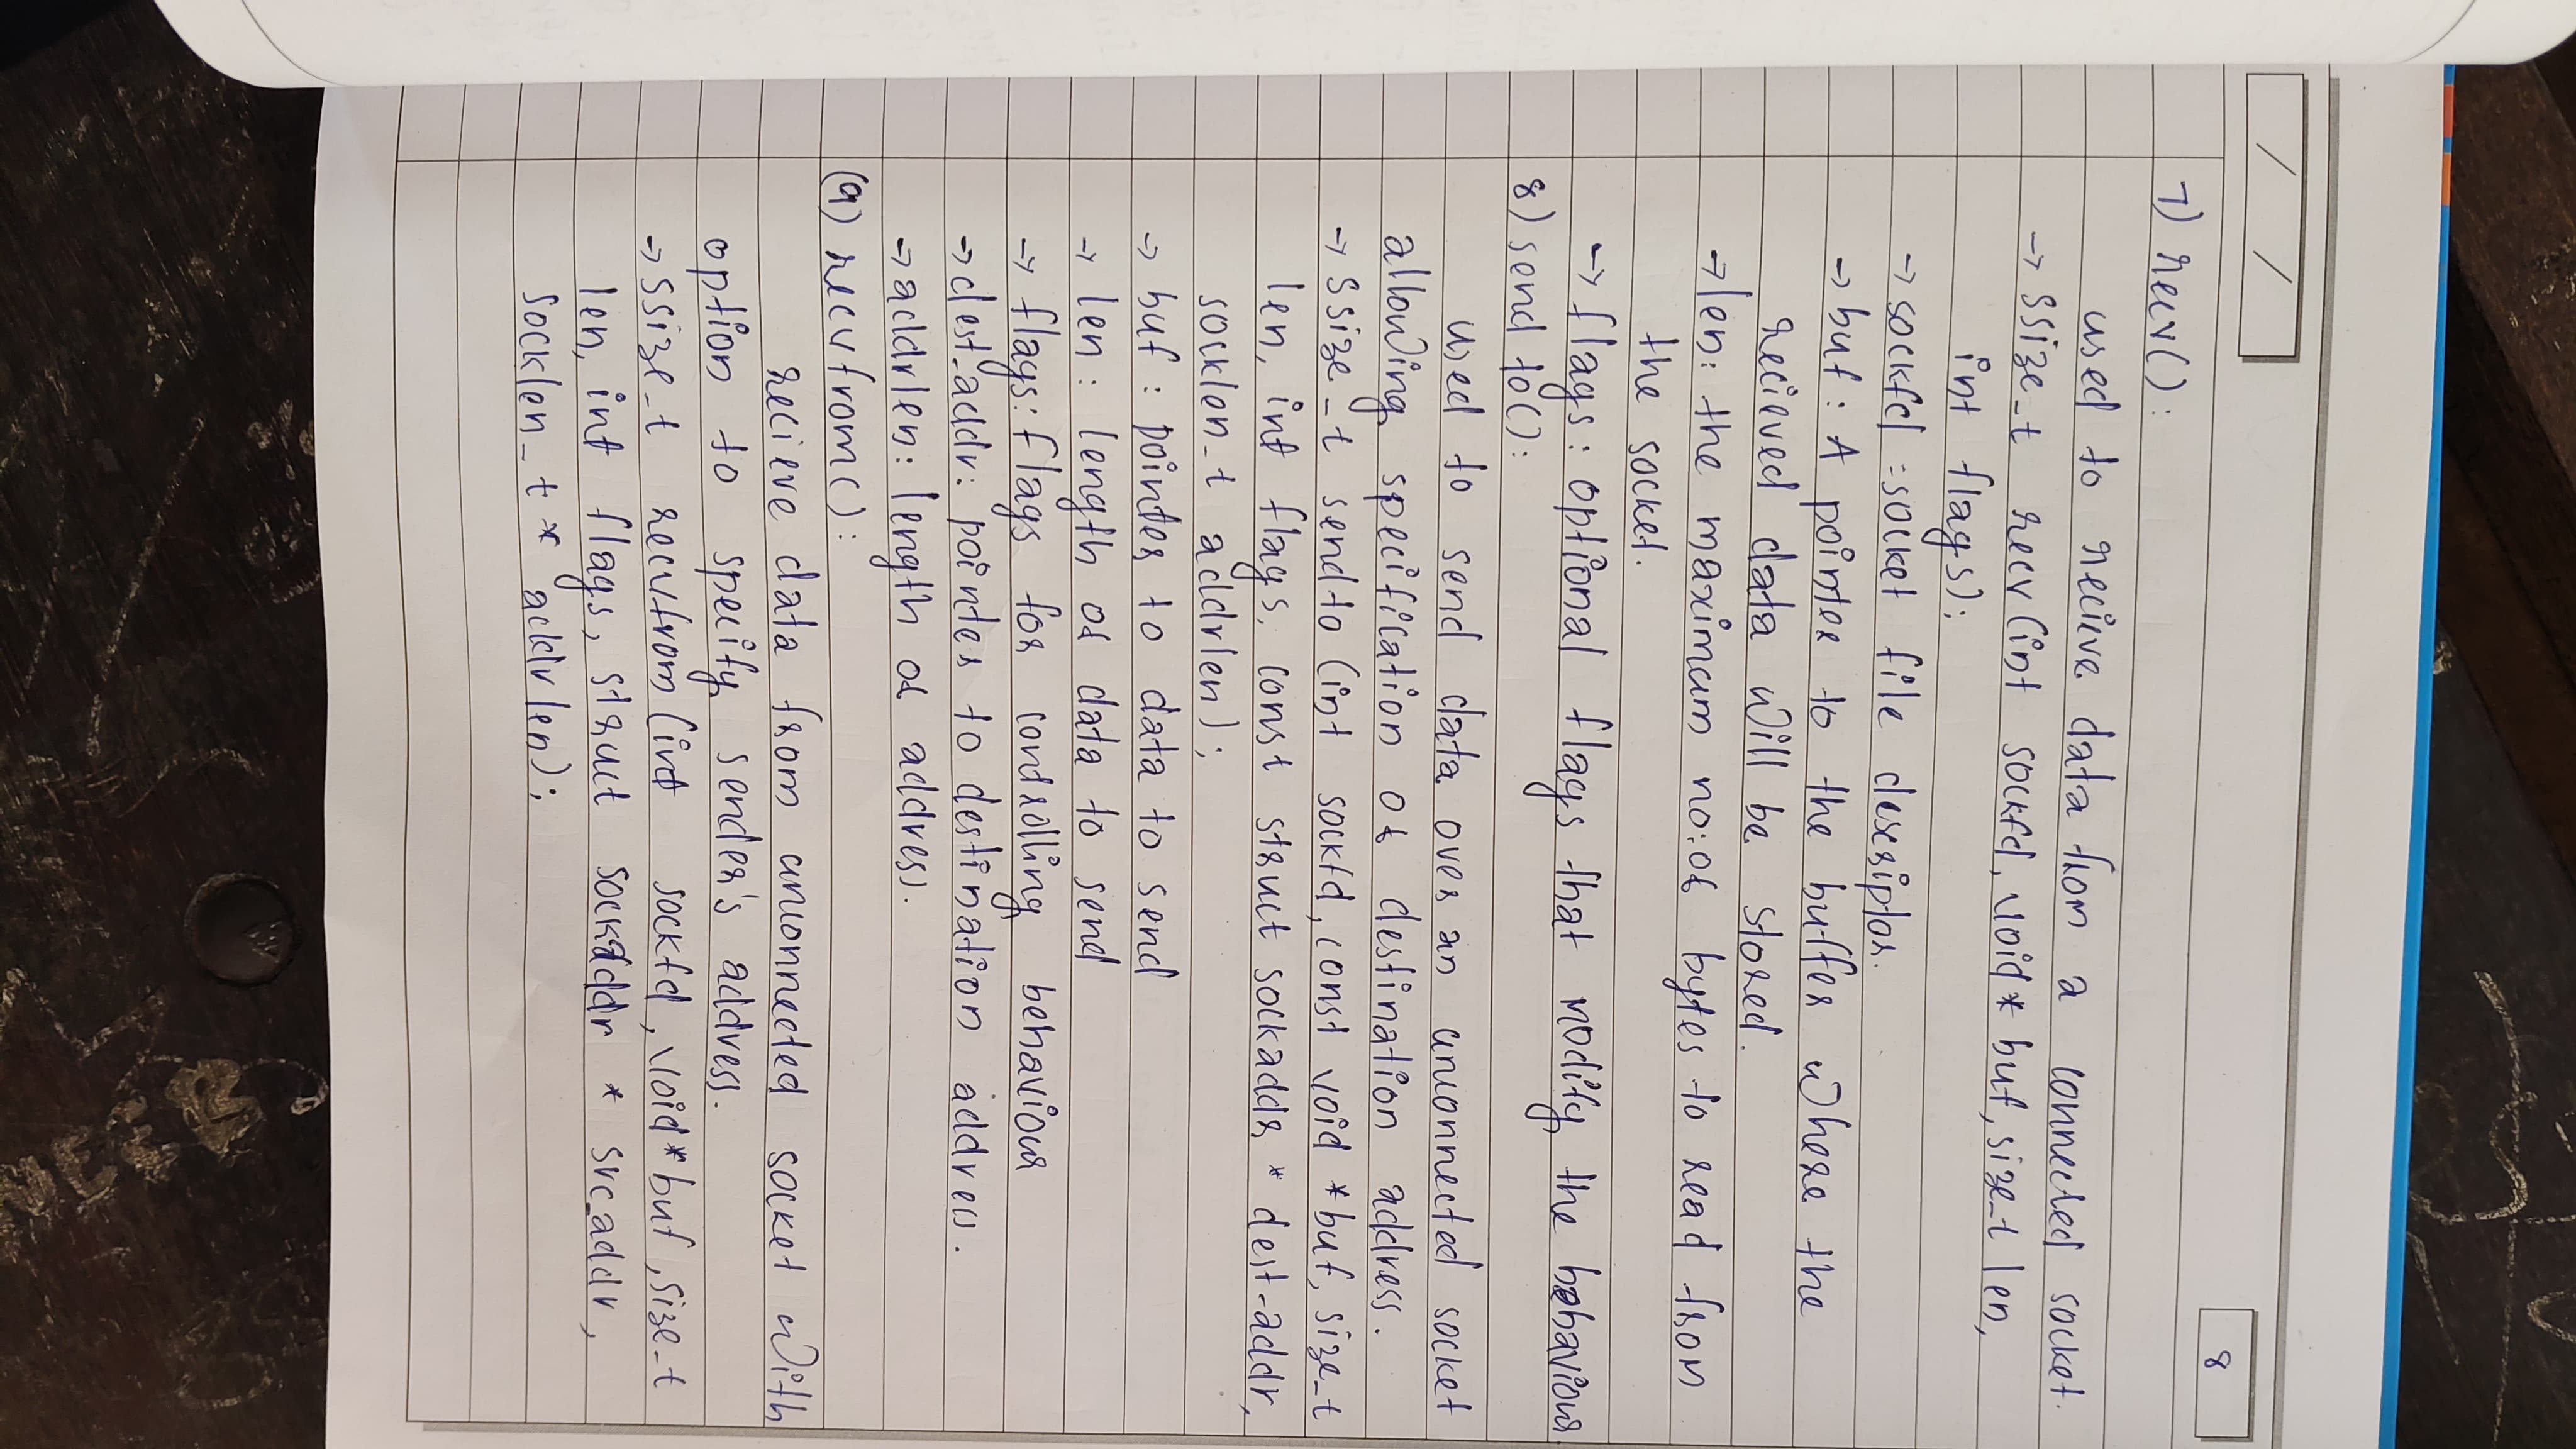 8
7) recv():
used to recieve data from a connected socket.
→ ssize_t recv (int sockfd, void* buf, size_t len,
int flags);
→ sockfd :socket file descriptor.
→ buf : A pointer to the buffer where the
recieved data will be stored.
→ len: the maximum no:of bytes to read from
the socket.
→ flags: optional flags that modify the behaviour
8) send to():
used to send data over an unconnected socket
allowing specification of destination address.
→ ssize_t sendto (int sockfd, const void *buf, size_t
len, int flags, const struct sockaddr * dest-addr,
socklen_t addrlen);
→ buf : pointer to data to send
→ len : length of data to send
→ flags: flags for controlling behaviour
→ dest_addr: pointer to destination address.
→ addrlen: length of address.
(9) recvfrom():
recieve data from unconnected socket with
option to specify sender's address.
→ ssize_t recvfrom (int sockfd, void* buf, size_t
len, int flags, struct sockaddr * src_addr,
socklen_t * addrlen);